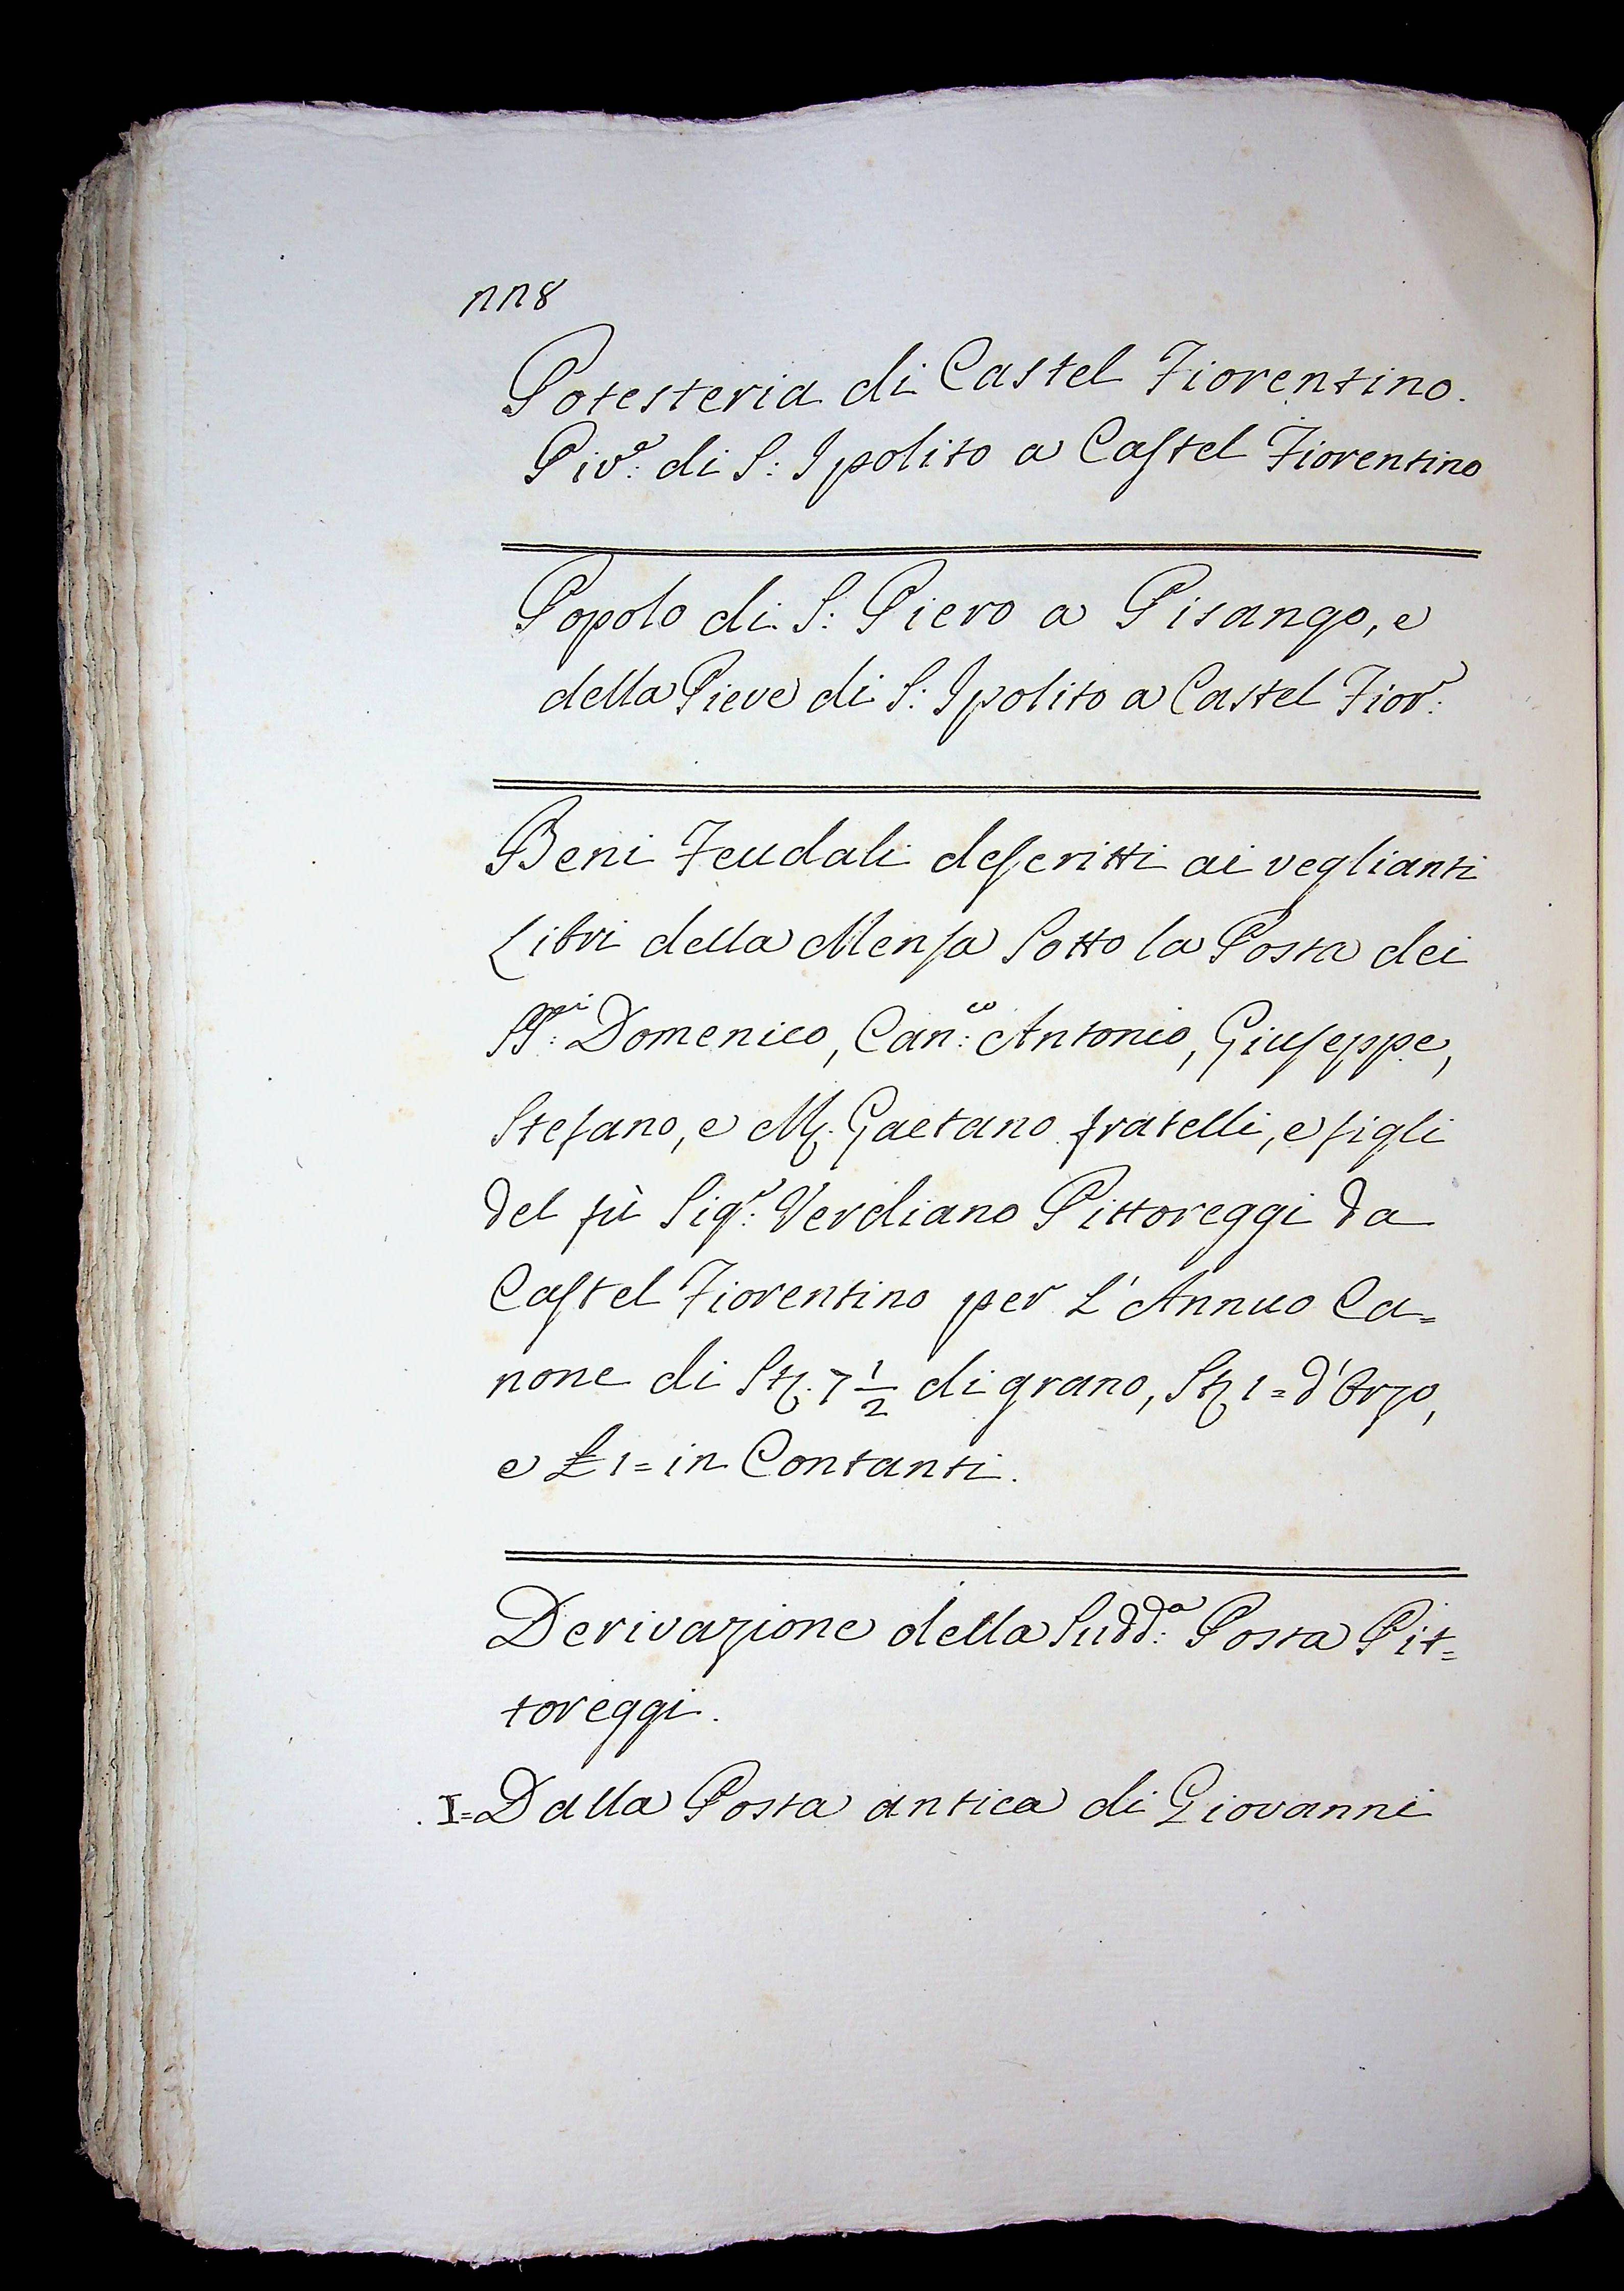 118
Potesteria di Castel Fiorentino.
Piv:e di S: Ipolito a Castel Fiorentino
Popolo di S: Piero a Pisango, e
della Pieve di S: Ipolito a Castel Fior:o
Beni Feudali descritti ai veglianti
Libri della Mensa Sotto la Posta dei
SS:ri Domenico, Can:co Antonio, Giuseppe,
Stefano, e M. Gaetano fratelli, e figli
del fù Sig:r Verdiano Pittoreggi da
Castel Fiorentino per L'Annuo Ca=
none di St. 7 1/2 di grano, St 1= d'Orzo,
e £ 1= in Contanti.
Derivazione della Sudd:a Posta Pit=
toreggi.
I= Dalla Posta antica di Giovanni